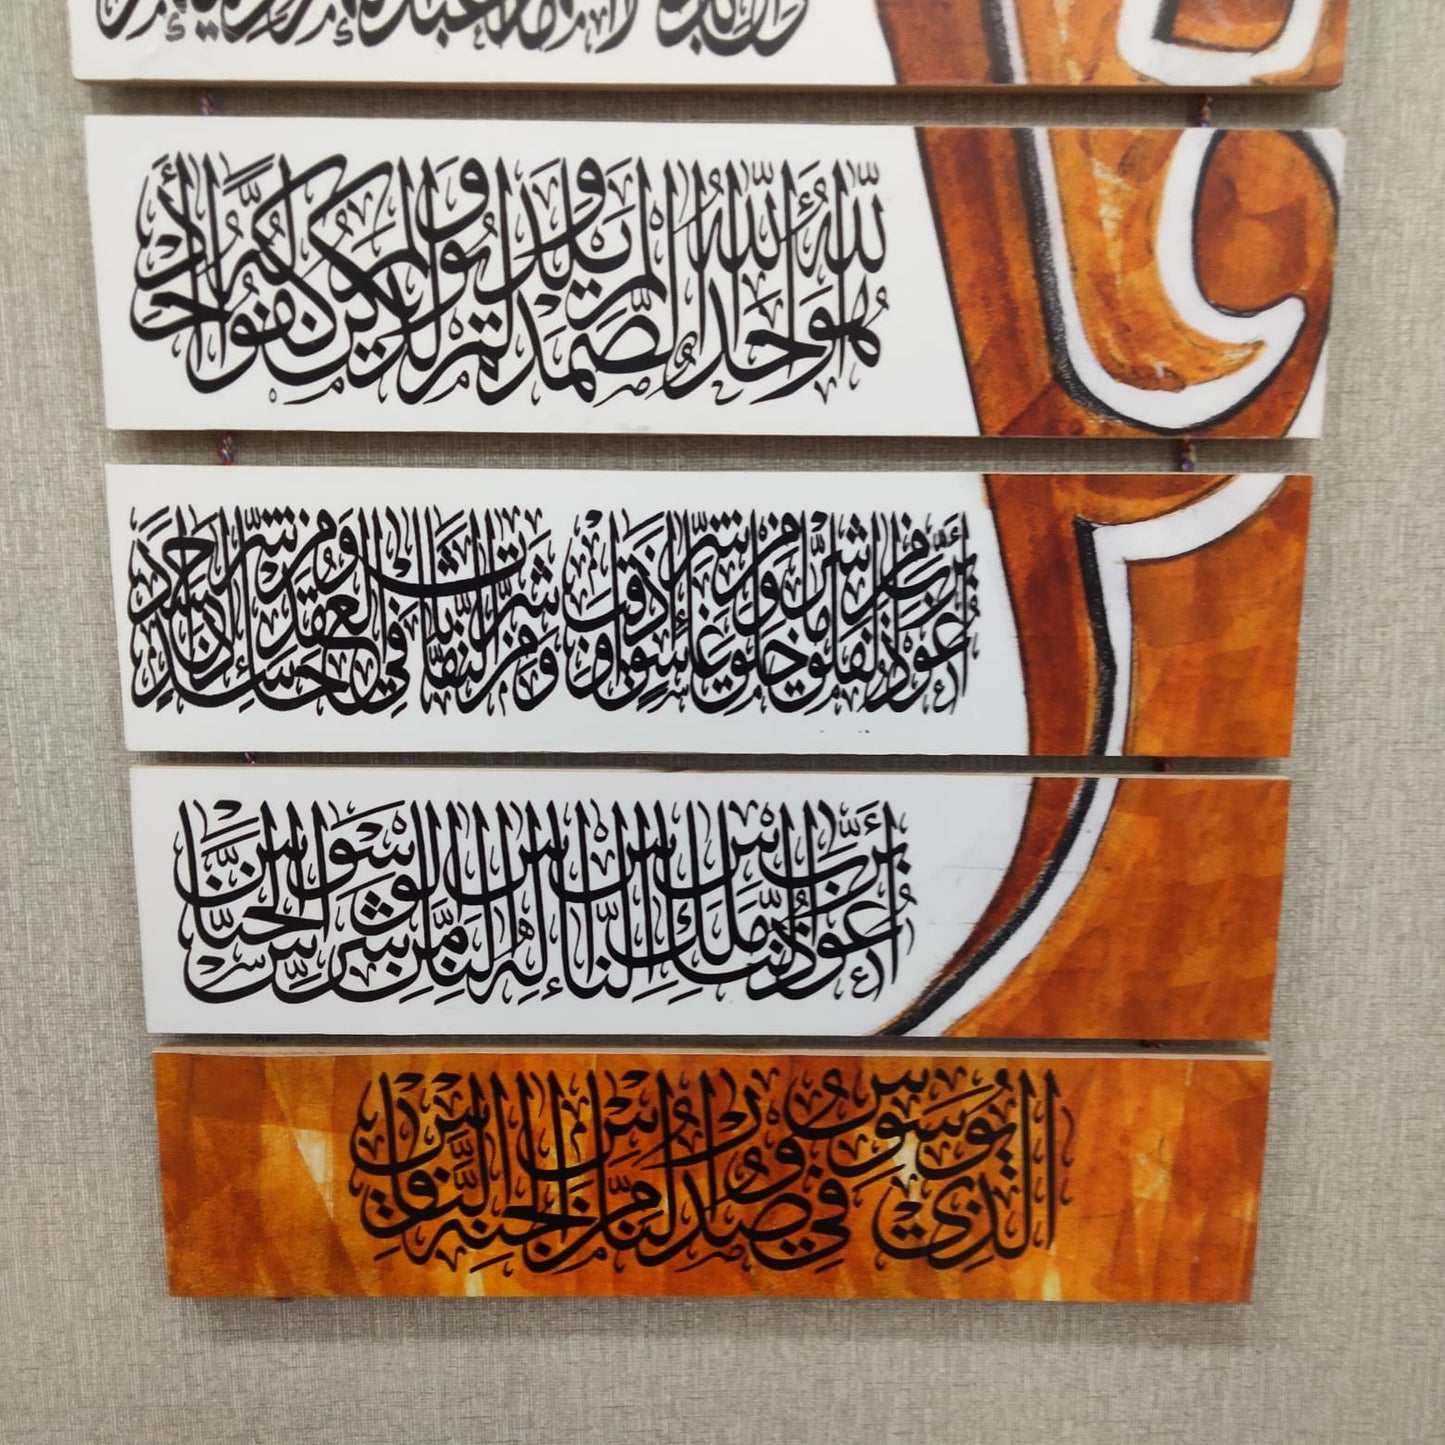 هُوَ اللَّهُ أَحَدٌ اللَّهُ الصَّمَدُ لَمْ يَلِدْ وَلَمْ يُولَدْ وَلَمْ يَكُنْ لَهُ كُفُوًا أَحَدٌ
أَعُوذُ بِرَبِّ الْفَلَقِ مِنْ شَرِّ مَا خَلَقَ وَمِنْ شَرِّ غَاسِقٍ إِذَا وَقَبَ وَمِنْ شَرِّ النَّفَّاثَاتِ فِي الْعُقَدِ وَمِنْ شَرِّ حَاسِدٍ إِذَا حَسَدَ
أَعُوذُ بِرَبِّ النَّاسِ مَلِكِ النَّاسِ إِلَهِ النَّاسِ مِنْ شَرِّ الْوَسْوَاسِ الْخَنَّاسِ
الَّذِي يُوَسْوِسُ فِي صُدُورِ النَّاسِ مِنَ الْجِنَّةِ وَالنَّاسِ